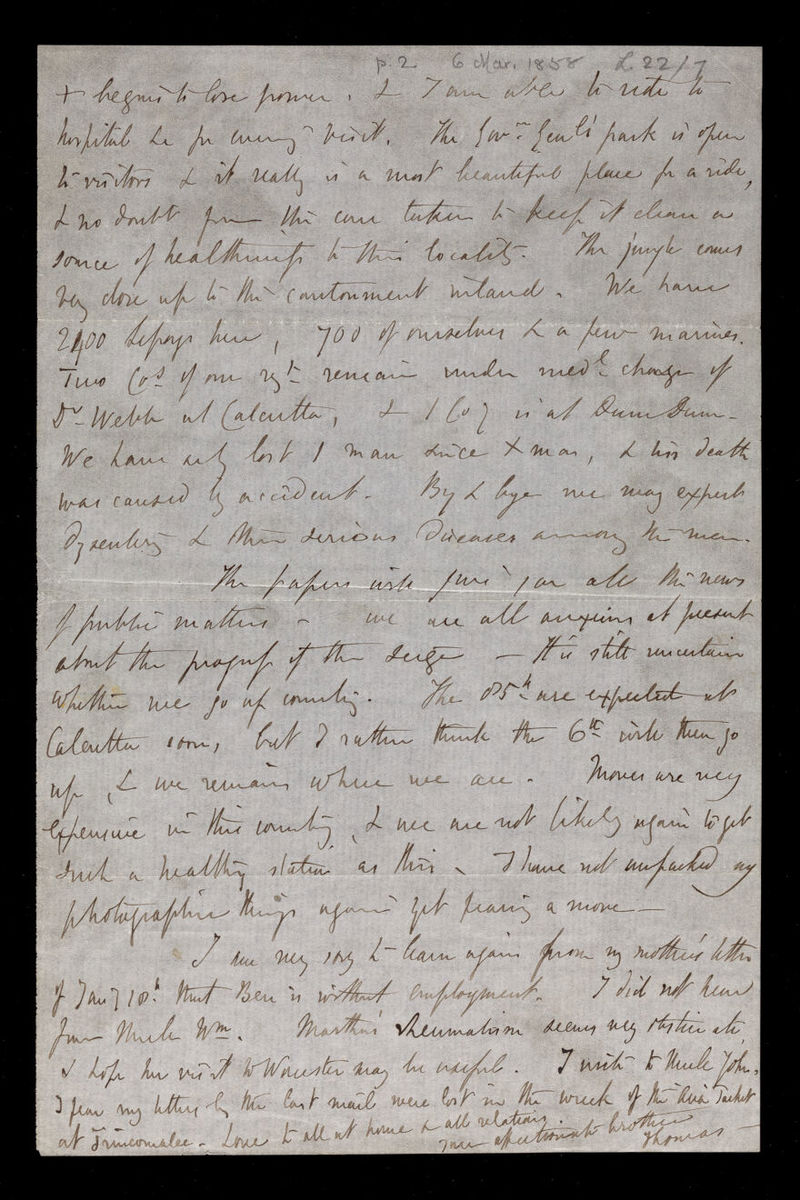 p. 2 6 Mar. 1858 L 22/7
+ begins to lose power. & I am able to ride to
hospital &c for evening visit. The Govr. Genl's park is open
to visitors & it really is a most beautiful place for a ride,
& no doubt from the care taken to keep it clean a
source of healthiness to this locality. The jungle comes
very close up to the cantonment inland. We have
2400 Sepoys here, 700 of ourselves & a few marines.
Two Cos. of our regt. remain under medl. charge of
Dr. Webb at Calcutta, & 1 Coy is at Dum Dum -
We have only lost 1 man since Xmas, & his death
was caused by accident. By & bye we may expect
dysentery & other serious diseases among the men.
The papers will give you all the news
of public matters - we are all anxious at present
about the progress of the siege - It is still uncertain
whether we go up country. The 85th are expected at
Calcutta soon, but I rather think the 6th will then go
up, & we remain where we are. Moves are very
expensive in this country, & we are not likely again to get
such a healthy station as this. I have not unpacked my
photographic things again yet fearing a move -
I am very sorry to learn again from my mother's letter
of Jany 18th. that Ben is without employment. I did not hear
from Uncle Wm. Martha's Rheumatism seems very obstinate,
I hope her visit to Worcester may be useful. I write to Uncle John.
I fear my letters by the last mail were lost in the wreck of the Ava Packet
at Trincomalee. Love to all at home & all relations.
Your affectionate brother
Thomas